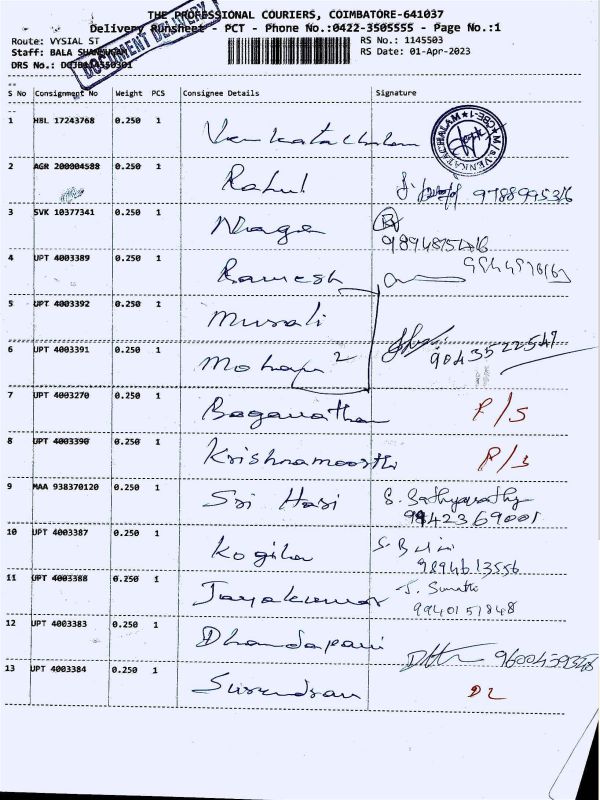 THE PROFESSIONAL COURIERS, COIMBATORE-641037
Delivery Runsheet - PCT - Phone No.:0422-3505555 - Page No.:1
Route: VYSIAL ST RS No.: 1145503
Staff: BALA RS Date: 01-Apr-2023
DRS No.:
DOCUMENT DELIVERY
S No Consignment No Weight PCS Consignee Details Signature
1 HBL 17243768 0.250 1 Venkatachalam M/s.VENKATACHALAM CBE-1
2 AGR 200004588 0.250 1 Rahul
3 SVK 10377341 0.250 1 Naga
4 UPT 4003389 0.250 1 Ramesh
5 UPT 4003392 0.250 1 Murali
6 UPT 4003391 0.250 1 Mohan 2 9043522547
7 UPT 4003270 0.250 1 Baganathan P/S
8 UPT 4003390 0.250 1 Krishnamoorthi P/S
9 MAA 938370120 0.250 1 Sri Hari S. Sathyavathy
9842369001
10 UPT 4003387 0.250 1 Kogila
9894613556
11 UPT 4003388 0.250 1 Jayakumar J. Sumathi
9940151848
12 UPT 4003383 0.250 1 Dhandapani
13 UPT 4003384 0.250 1 Surendran DL